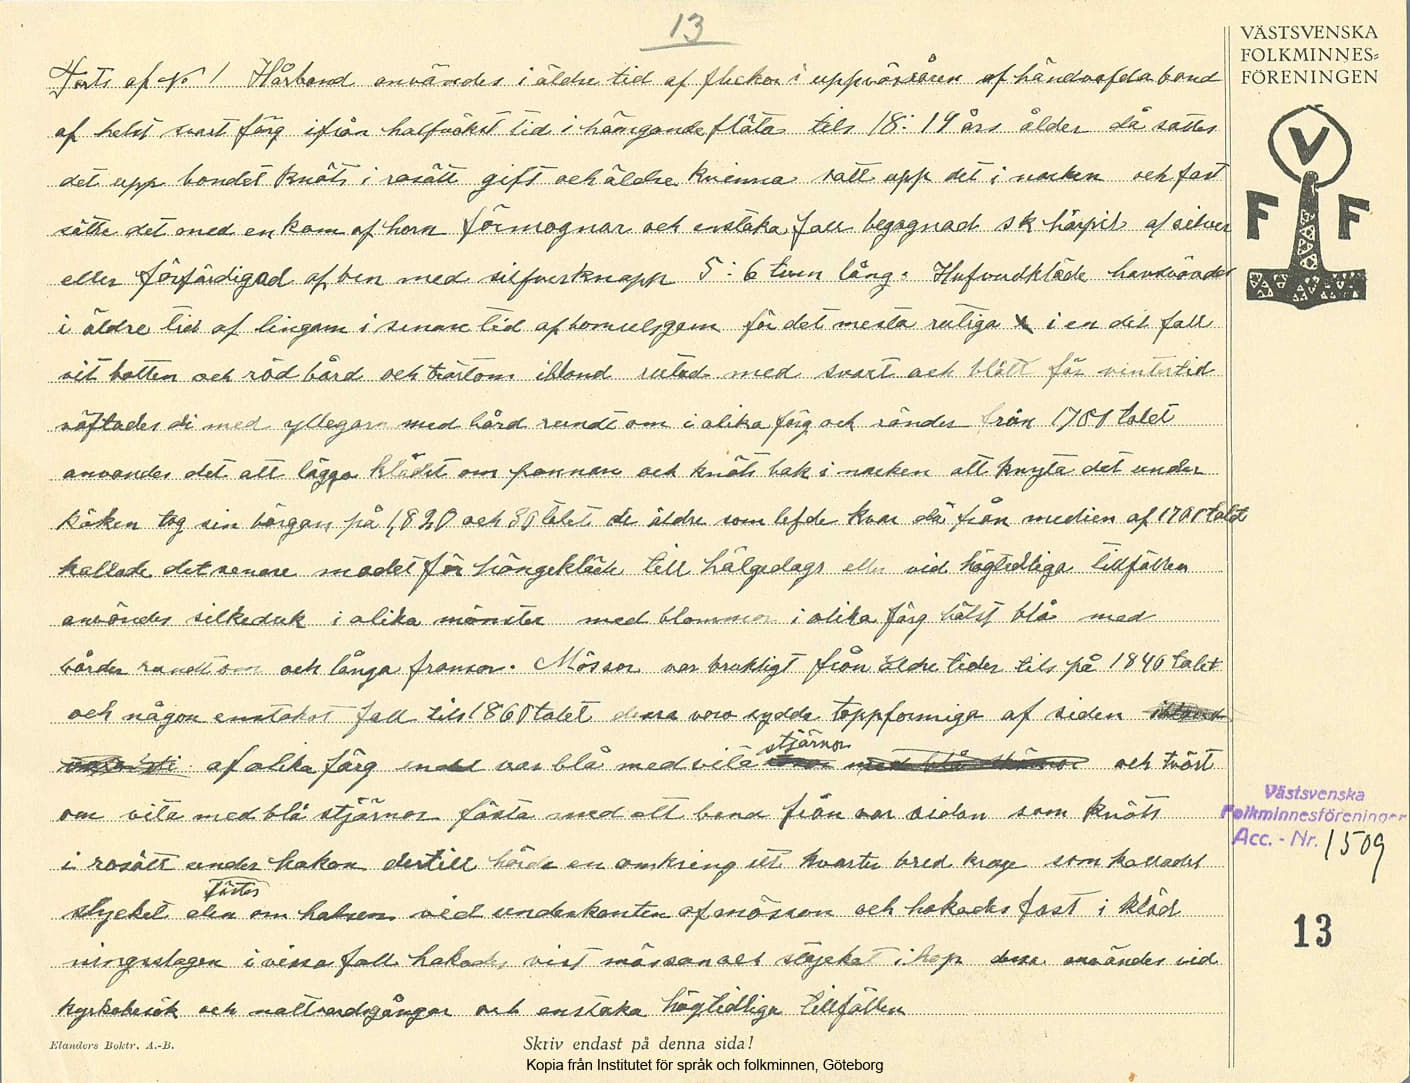 13
VÄSTSVENSKA
FOLKMINNES=
FÖRENINGEN
V
F F
Forts af No 1 Hårband användes i äldre tid af flickor i uppväxtåren af händvafda band
af helst svart färg ifrån halfväkst tid i hängande fläta tils 18: 19 års ålder då sattes
det upp bandet knöts i rosätt gift och äldre kvinna satt upp det i nacken och fast
sätte det med en kam af horn förmognar och enstaka fall begagnad sk hårpil af silver
eller förfärdigad af ben med silfverknapp 5: 6 tum lång. Hufvudkläde
i äldre tid af lingarn i senare tid af bomulsgarn för det mesta rutiga i en del fall
vit botten och röd bård och tvärtom ibland rutad med svart och blått för vintertid
väftades di med yllegarn med bård rundt om i olika färg och ränder från 1750 talet
användes det att lägga klädet om pannan och knöts bak i nacken att knyta det under
käken tog sin börgan på 1,820 och 30 talet de äldre som lefde kvar då från medien af 1700 talet
kallade det senare modet för hängekläde till hälgedags eller vid högtidliga tillfällen
användes silkeduk i olika mönster med blommor i olika färg hälst blå med
bårder rundt om och långa fransor. Mössor var brukligt från äldre tider tils på 1840 talet
och någon enstakat fall tils 1860 talet dessa voro sydda toppformiga af siden
af olika färg var blå med vita stjärnor och tvärt
om vita med blå stjärnor fästa med ett band från var sidan som knöts
i rosätt under hakan dertill hörde en omkring ett kvarter bred krage som kallades
stycket den fästes om halsen vid underkanten af mössan och hakades fast i kläd
ningsslagen i vissa fall hakades vist mössan och stycket ihop dessa användes vid
kyrkobesök och nattvardsgångar och enstaka högtidliga tillfällen
Västsvenska
Folkminnesföreningen
Acc. - Nr. 1509
13
Elanders Boktr. A.-B.
Skriv endast på denna sida!
Kopia från Institutet för språk och folkminnen, Göteborg